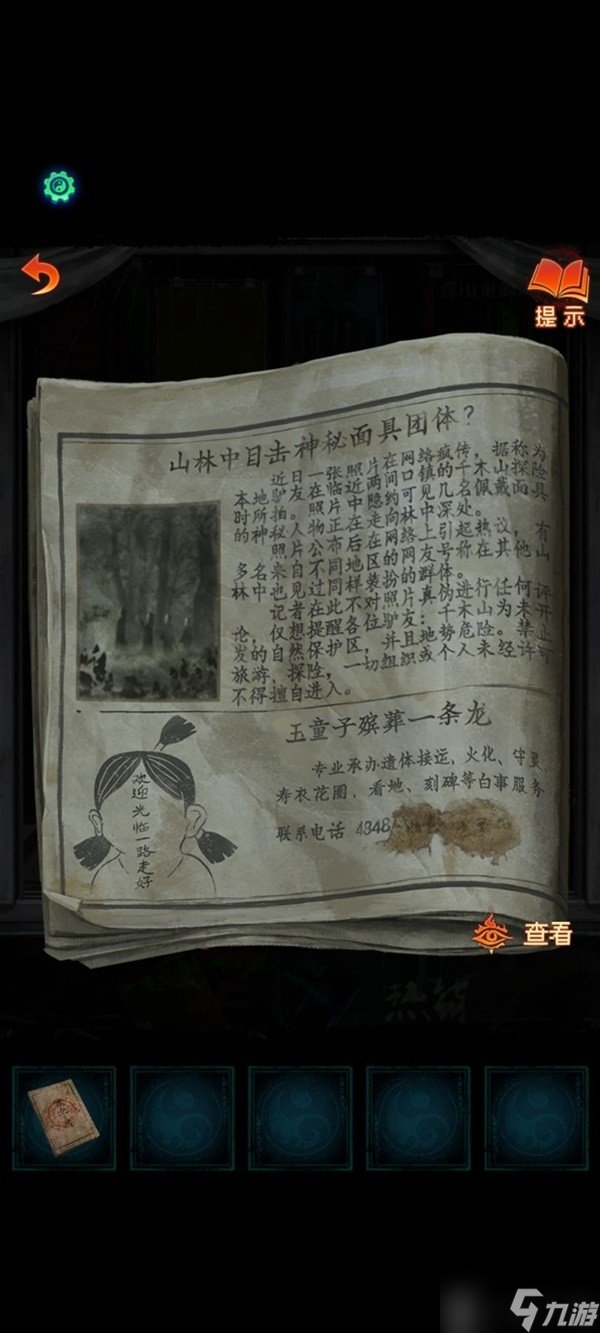 提示
山林中目击神秘面具团体？
近日一张照片在网络疯传，据称为
本地驴友在临近两间口镇的千木山探险
时所拍。照片中隐约可见几名佩戴面具
的神秘人物正在走向林中深处。
照片公布后在网络上引起热议，有
多名来自不同地区的网友号称在其他山
林中也见过同样装扮的群体。
记者在此不对照片真伪进行任何评
论，仅想提醒各位驴友：千木山为未开
发的自然保护区，并且地势危险。禁止
旅游、探险，一切组织或个人未经许可
不得擅自进入。
玉童子殡葬一条龙
专业承办遗体接运，火化、守灵、
寿衣花圈、看地、刻碑等白事服务
联系电话
欢迎光临一路走好
查看
九游